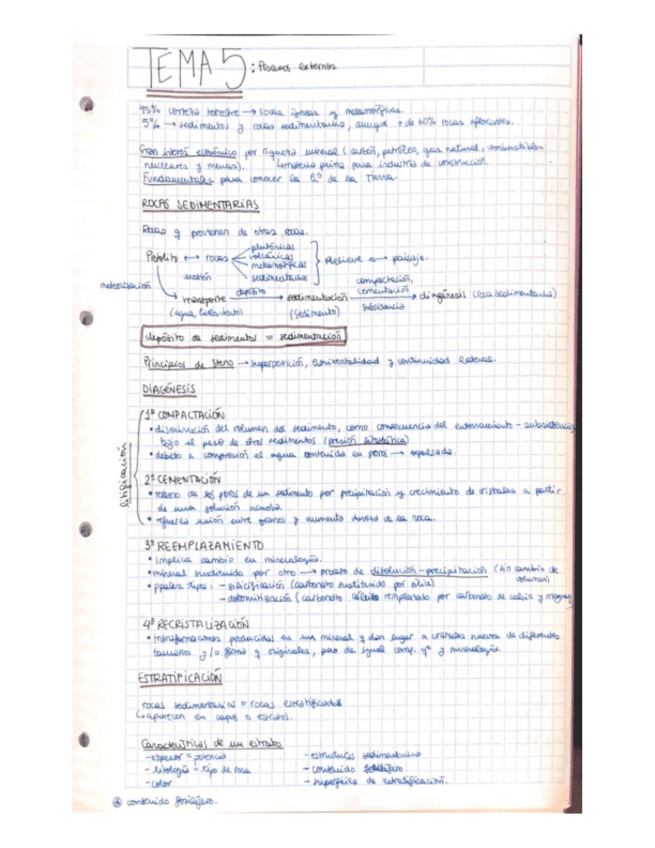 TEMA 5: Procesos externos
95% corteza terrestre → rocas ígneas y metamórficas.
5% → sedimentos y rocas sedimentarias, aunque + de 60% rocas aflorantes.
Gran interés económico por riqueza mineral (carbón, petróleo, gas natural, combustibles
nucleares y menas). ↳materia prima para industria de construcción.
Fundamentales para conocer la Hª de la Tierra.
ROCAS SEDIMENTARIAS
Rocas q provienen de otras rocas.
plutónicas
volcánicas
Protolito ↔ rocas metamórficas Relieve ↔ paisaje.
sedimentarias
meteorización erosión depósito compactación,
cementación
transporte → sedimentación → diagénesis (roca sedimentaria)
subsidencia
(agua, hielo, viento) (sedimento)
depósito de sedimentos = sedimentación
Principios de Steno → superposición, horizontalidad y continuidad lateral.
DIAGÉNESIS
litificación
1º COMPACTACIÓN
• disminución del volumen del sedimento, como consecuencia del enterramiento - subsidencia
bajo el peso de otros sedimentos (presión litostática)
• debido a compresión el agua contenida en poros → expulsada.
2º CEMENTACIÓN
• relleno de los poros de un sedimento por precipitación y crecimiento de cristales a partir
de una solución acuosa.
• refuerza unión entre granos y aumenta dureza de la roca.
3º REEMPLAZAMIENTO
• implica cambio en mineralogía.
• mineral sustituido por otro → proceso de disolución-precipitación (sin cambio de
volumen)
• ppales tipos: - silicificación (carbonato sustituido por sílice)
- dolomitización (carbonato cálcico remplazado por carbonato de calcio y magnesio
4º RECRISTALIZACIÓN
• transformaciones producidas en un mineral y dan lugar a cristales nuevos de diferentes
tamaños y/o forma q originales, pero de igual comp. qª y mineralogía.
ESTRATIFICACIÓN
rocas sedimentarias = rocas estratificadas
↳aparecen en capas o estratos).
Características de un estrato
- espesor = potencia - estructuras sedimentarias
- litología = tipo de roca - contenido
- color - superficie de estratificación.
contenido fosilífero.